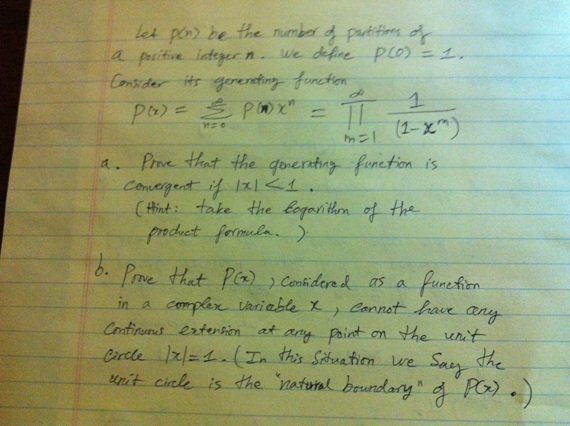 Let p(n) be the number of partitions of
a positive integer n. We define P(0) = 1.
Consider its generating function
P(x) = ∞ Σ n=0 P(n) x^n = ∞ ∏ m=1 1/(1-x^m)
a. Prove that the generating function is
convergent if |x|<1.
(Hint: take the logarithm of the
product formula.)
b. Prove that P(x), considered as a function
in a complex variable x, cannot have any
continuous extension at any point on the unit
circle |x|=1. (In this situation we say the
unit circle is the "natural boundary" of P(x).)